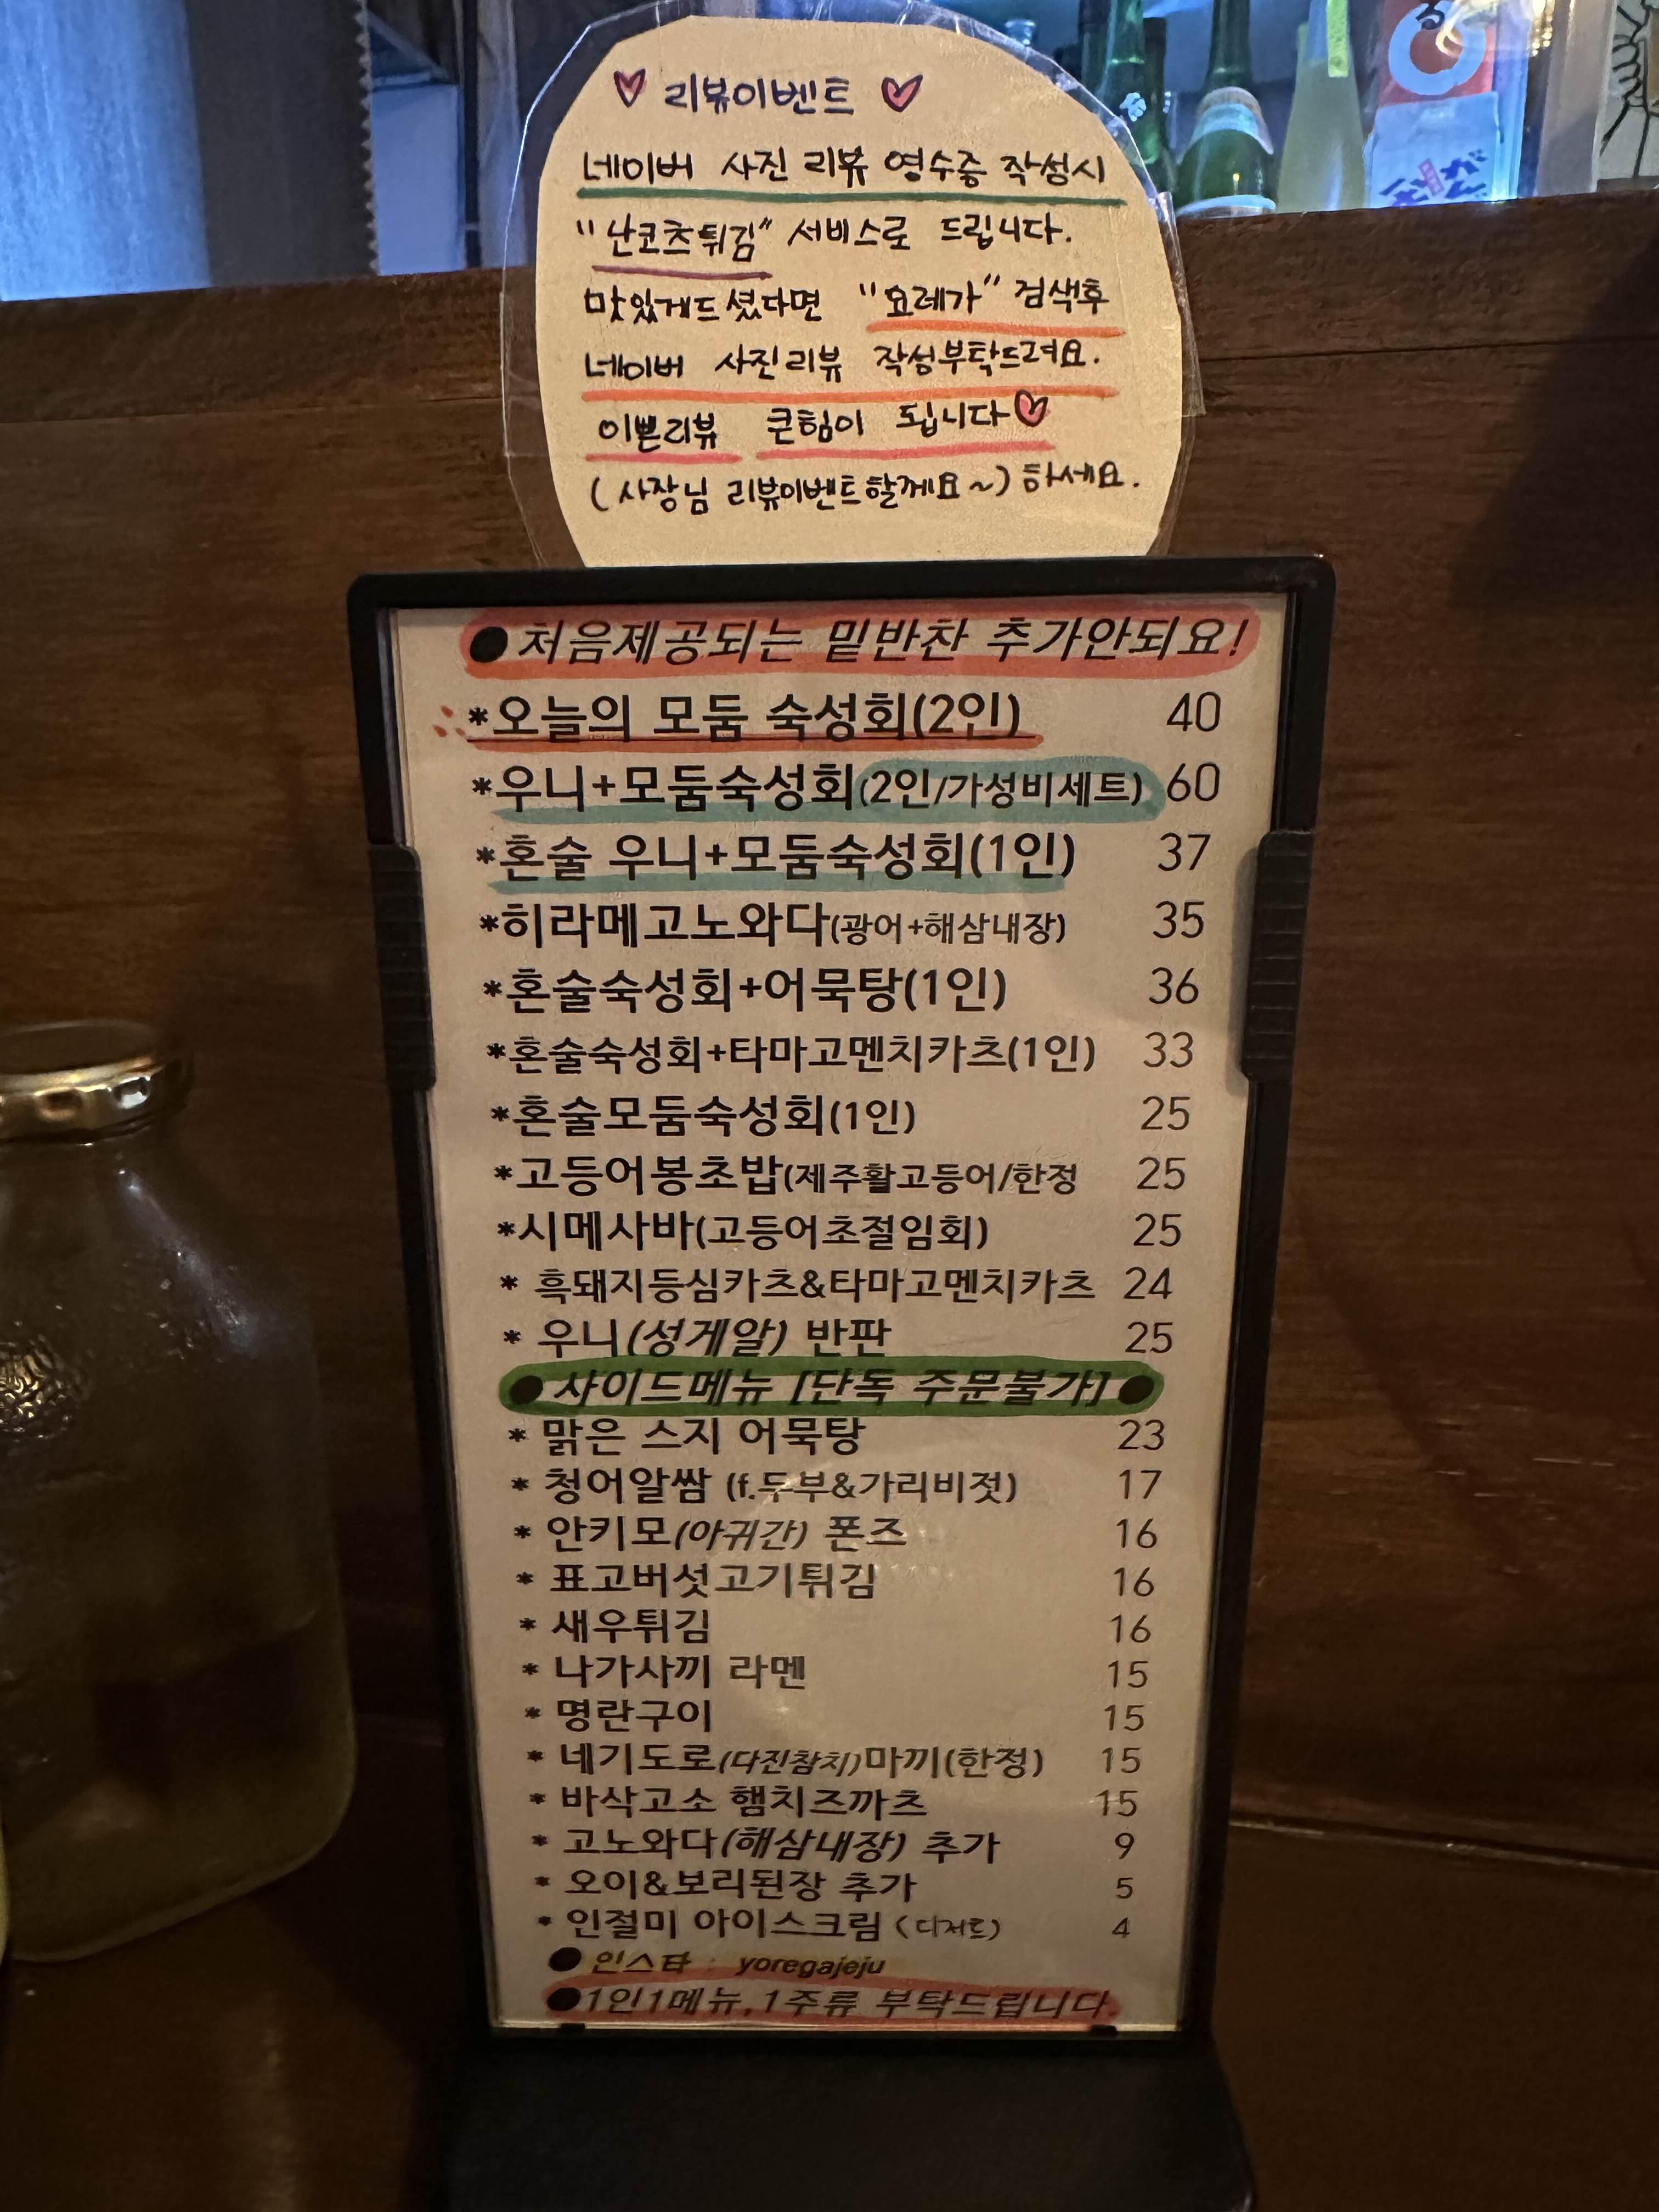 리뷰이벤트
네이버 사진 리뷰 영수증 작성시
"난코츠튀김" 서비스로 드립니다.
맛있게드셨다면 "요레가" 검색후
네이버 사진리뷰 작성부탁드려요.
이쁜리뷰 큰힘이 됩니다
(사장님 리뷰이벤트할께요~) 하세요.
●처음제공되는 밑반찬 추가안되요!
*오늘의 모둠 숙성회(2인) 40
*우니+모둠숙성회(2인/가성비세트) 60
*혼술 우니+모둠숙성회(1인) 37
*히라메고노와다(광어+해삼내장) 35
*혼술숙성회+어묵탕(1인) 36
*혼술숙성회+타마고멘치카츠(1인) 33
*혼술모둠숙성회(1인) 25
*고등어봉초밥(제주활고등어/한정 25
*시메사바(고등어초절임회) 25
* 흑돼지등심카츠&타마고멘치카츠 24
* 우니(성게알) 반판 25
●사이드메뉴 [단독 주문불가]●
* 맑은 스지 어묵탕 23
* 청어알쌈 (f.두부&가리비젓) 17
* 안키모(아귀간) 폰즈 16
* 표고버섯고기튀김 16
* 새우튀김 16
* 나가사끼 라멘 15
* 명란구이 15
* 네기도로(다진참치)마끼(한정) 15
* 바삭고소 햄치즈까츠 15
* 고노와다(해삼내장) 추가 9
* 오이&보리된장 추가 5
* 인절미 아이스크림 (디저트) 4
●인스타 : yoregajeju
●1인1메뉴,1주류 부탁드립니다.